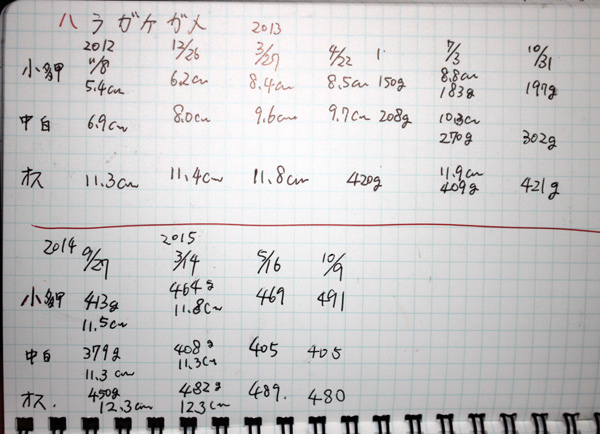 ハラガケガメ 2013
2012 12/26 3/27 4/22 1 7/3 10/31
11/8
小多甲 5.4cm 6.2cm 8.4cm 8.5cm 150g 8.8cm 197g
183g
中白 6.9cm 8.0cm 9.6cm 9.7cm 208g 10.3cm
270g 302g
オス 11.3cm 11.4cm 11.8cm 420g 11.9cm 421g
409g
2014 9/27 2015
3/14 5/16 10/9
小多甲 413g 464g 469 491
11.5cm 11.8cm
中白 379g 408g 405 405
11.3cm 11.3cm
オス. 450g 482g 489. 480
12.3cm 12.3cm